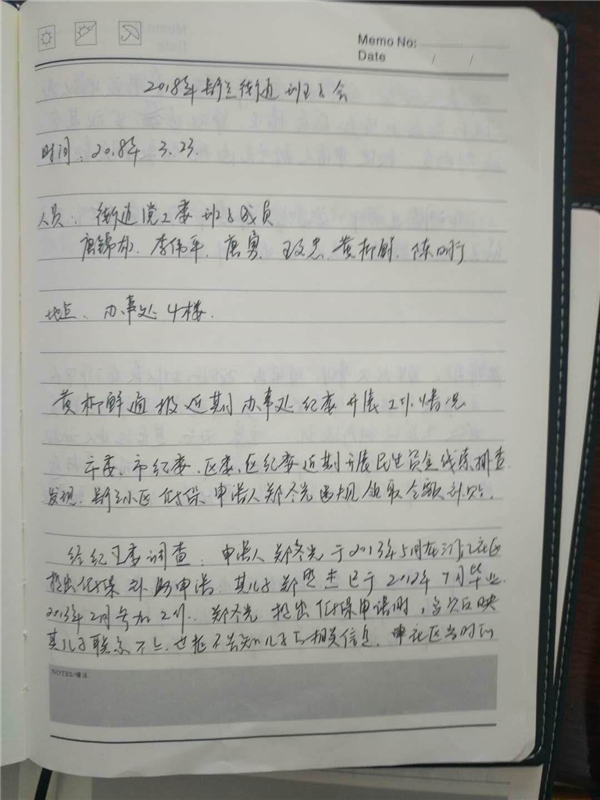 Memo No:
Date / /
2018年 街道 班子会
时间: 2018年 3.23.
人员: 街道党工委班子成员
唐锦 李伟平、唐勇、王 忠、黄柳 、陈
地点、办事处4楼.
黄柳 通报近期办事处纪委开展工作情况
市委、市纪委、区委、区纪委近期开展民生资金线索排查
发现, 小区低保申请人郑冬光违规领取金额补贴.
经纪工委调查: 申请人郑冬光于2013年5月在 社区
提出低保补助申请. 其儿子郑思杰已于2012年7月毕业.
2013年2月参加工作. 郑冬光提出低保申请时,多次反映
其儿子联系不上.也拒不告知儿子的相关信息. 社区当时
NOTES/备注